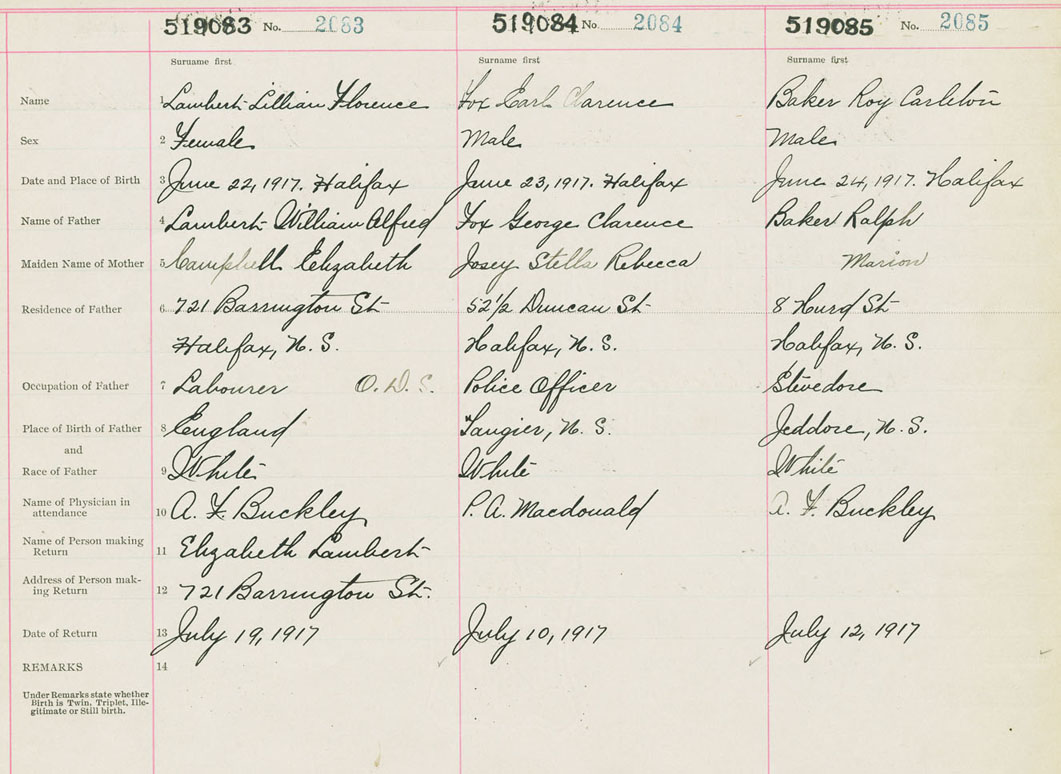 519083 No. 2083 519084 No. 2084 519085 No. 2085
Surname first Surname first Surname first
Name 1 Lambert Lillian Florence Fox Earl Clarence Baker Roy Carleton
Sex 2 Female Male Male
Date and Place of Birth 3 June 22, 1917. Halifax June 23, 1917. Halifax June 24, 1917. Halifax
Name of Father 4 Lambert William Alfred Fox George Clarence Baker Ralph
Maiden Name of Mother 5 Campbell Elizabeth Josey Stella Rebecca Marion
Residence of Father 6 721 Barrington St 52½ Duncan St 8 Hurd St
Halifax, N. S. Halifax, N. S. Halifax, N. S.
Occupation of Father 7 Labourer O. D. S. Police Officer Stevedore
Place of Birth of Father 8 England Tangier, N. S. Jeddore, N. S.
and
Race of Father 9 White White White
Name of Physician in
attendance 10 A. F. Buckley P. A. Macdonald A. F. Buckley
Name of Person making
Return 11 Elizabeth Lambert
Address of Person mak-
ing Return 12 721 Barrington St.
Date of Return 13 July 19, 1917 July 10, 1917 July 12, 1917
REMARKS 14
Under Remarks state whether
Birth is Twin, Triplet, Ille-
gitimate or Still birth.